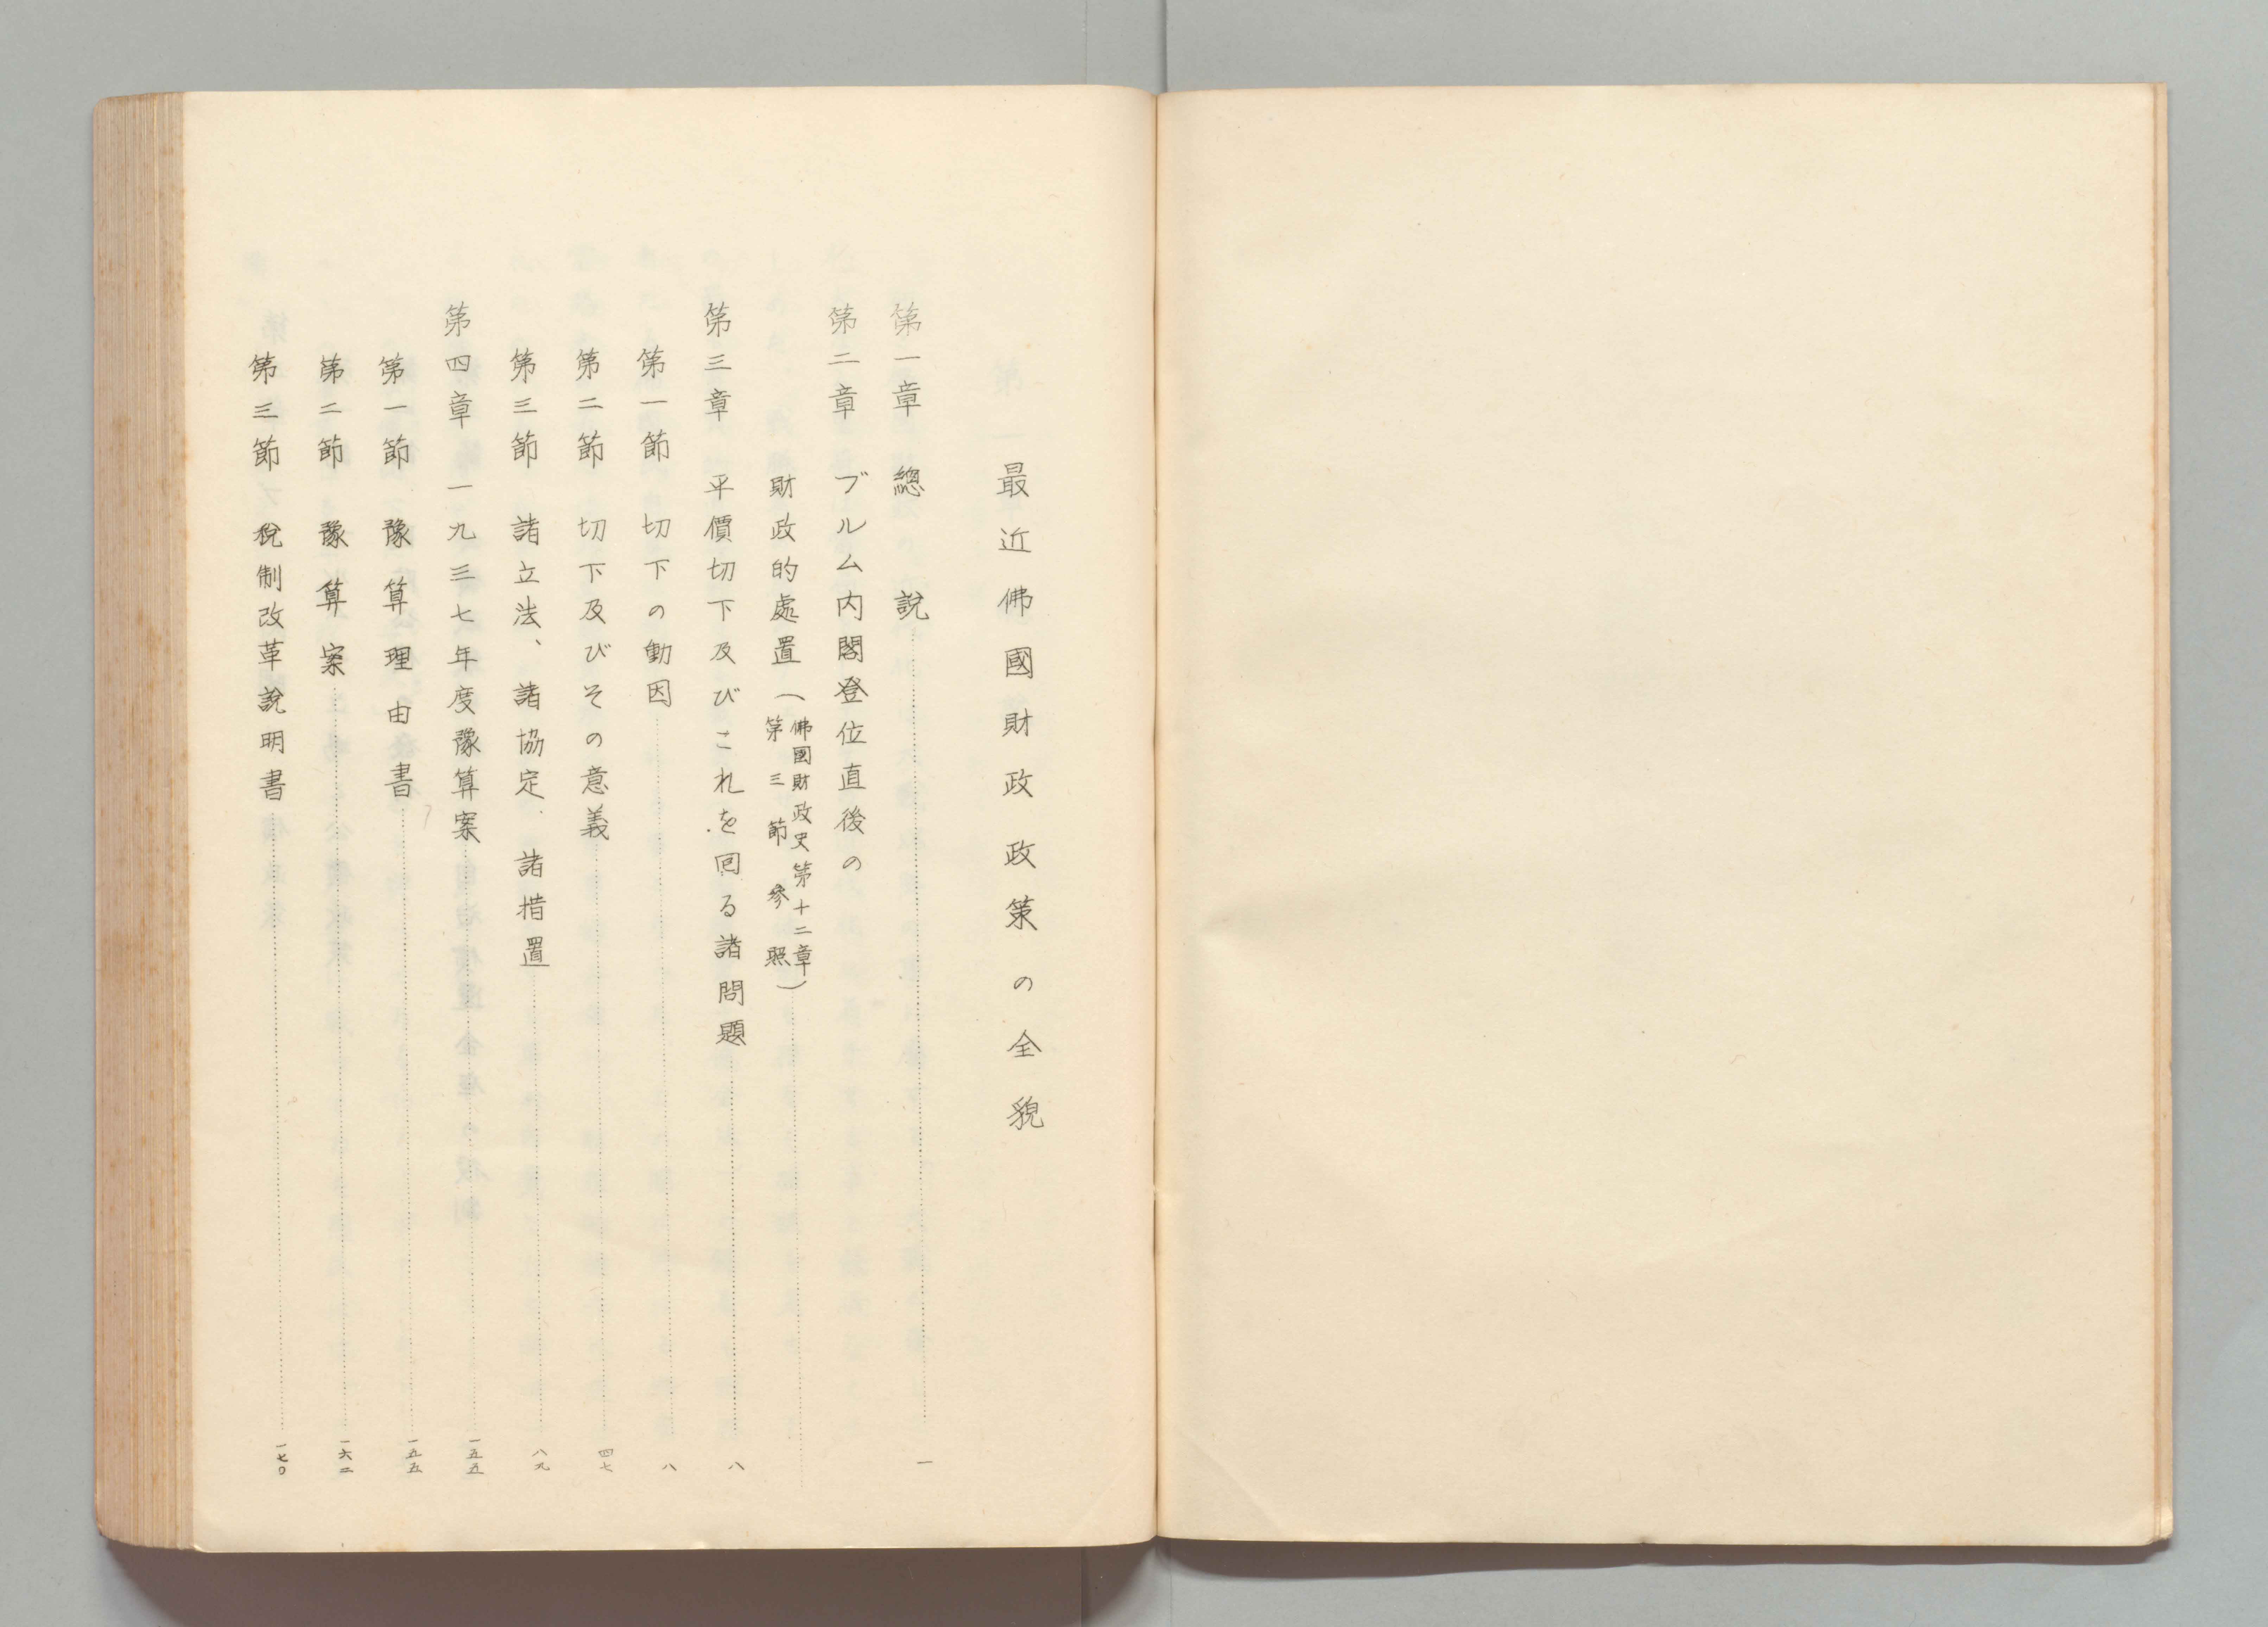 最近佛國財政政策の全貌
第一章 總說 一
第二章 ブルム内閣登位直後の
財政的處置(佛國財政史第十二章
第三節參照)
第三章 平價切下及びこれを囘る諸問題 八
第一節 切下の動因 八
第二節 切下及びその意義 四七
第三節 諸立法、諸協定、諸措置 八九
第四章 一九三七年度豫算案 一五五
第一節 豫算理由書 一五五
第二節 豫算案 一六二
第三節 稅制改革說明書 一七〇